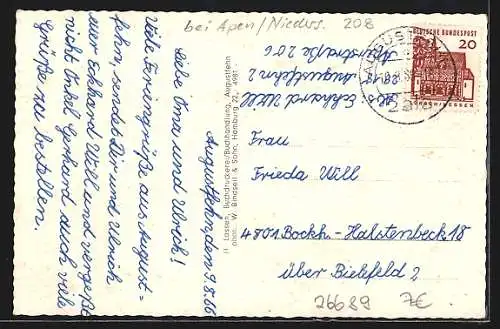 bei Apen/Niedrs. 208
Augustfehn, den 9.8.66
Liebe Oma und Ulrich!
Viele Feriengrüße aus August=
fehn, sendet Dir und Ulrich
euer Eckhard Will und vergeßt
nicht Onkel Gerhard auch viele
Grüße zu bestellen.
H. Lassen, Buchdruckerei/Buchhandlung, Augustfehn
phot. W. Bindseil & Sohn, Hamburg 22, 4981
Abs.: Eckhard Will
Augustfehn 2
Hauptstraße 206
DEUTSCHE BUNDESPOST
20
LORSCH/HESSEN
Frau
Frieda Will
4801 Bockh.-Halstenbeck 18
über Bielefeld 2
26689 7€